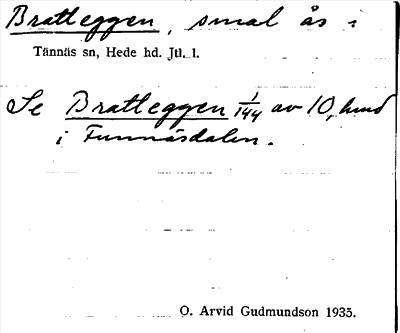 Bratteggen, smal ås i
Tännäs sn, Hede hd. Jtl. l.
Se Bratteggen 1/144 av 10, hmd
i Funnäsdalen.
O. Arvid Gudmundson 1935.